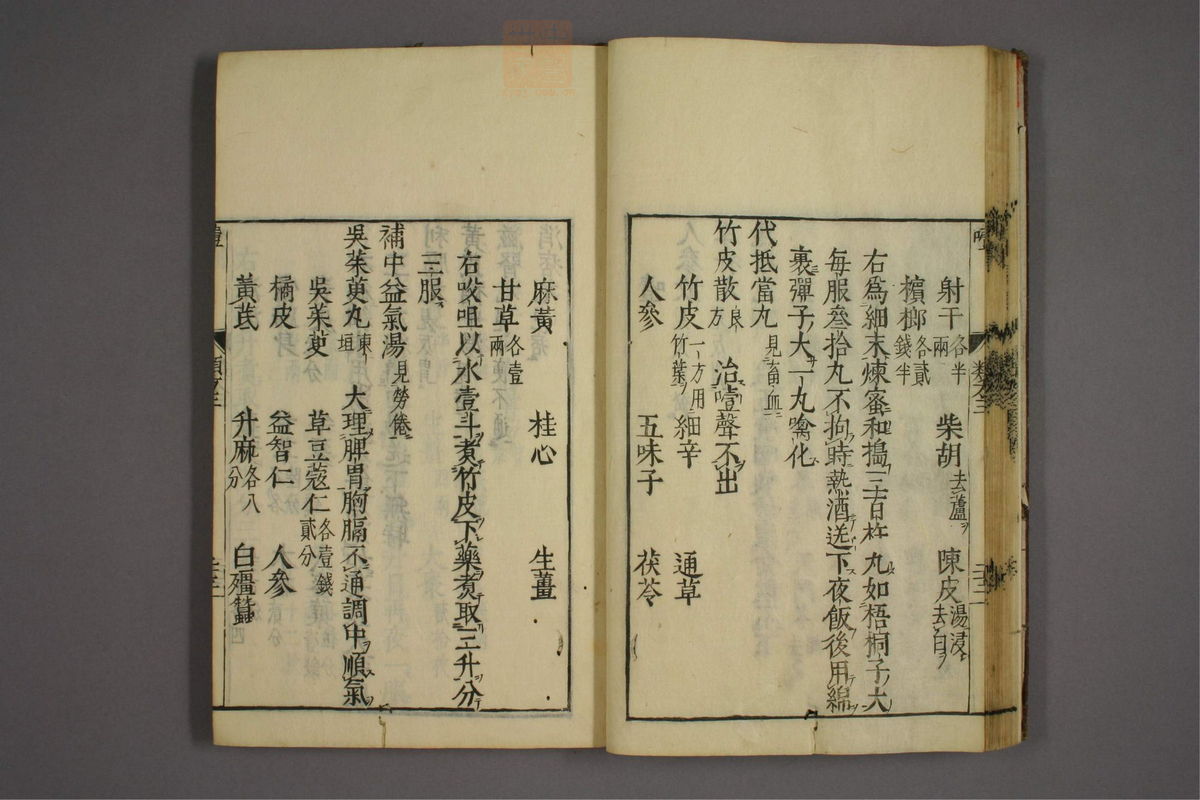 射干各半兩　柴胡去蘆　陳皮湯浸去白
檳榔各貳錢半
右為細末煉蜜和搗三百杵丸如梧桐子大
每服叁拾丸不拘時熱酒送下夜飯後用綿
裹彈子大一丸噙化
代抵當丸見畜血
竹皮散良方　治噎聲不出
竹皮一方用竹葉　細辛　通草
人參　五味子　茯苓
麻黃　桂心　生薑
甘草各壹兩
右㕮咀以水壹斗煮竹皮下藥煮取三升分
三服
補中益氣湯見勞倦
吳茱萸丸東垣　大理脾胃胸膈不通調中順氣
吳茱萸　草豆蔻仁各壹錢貳分
橘皮　益智仁　人參
黃芪　升麻各八分　白殭蠶